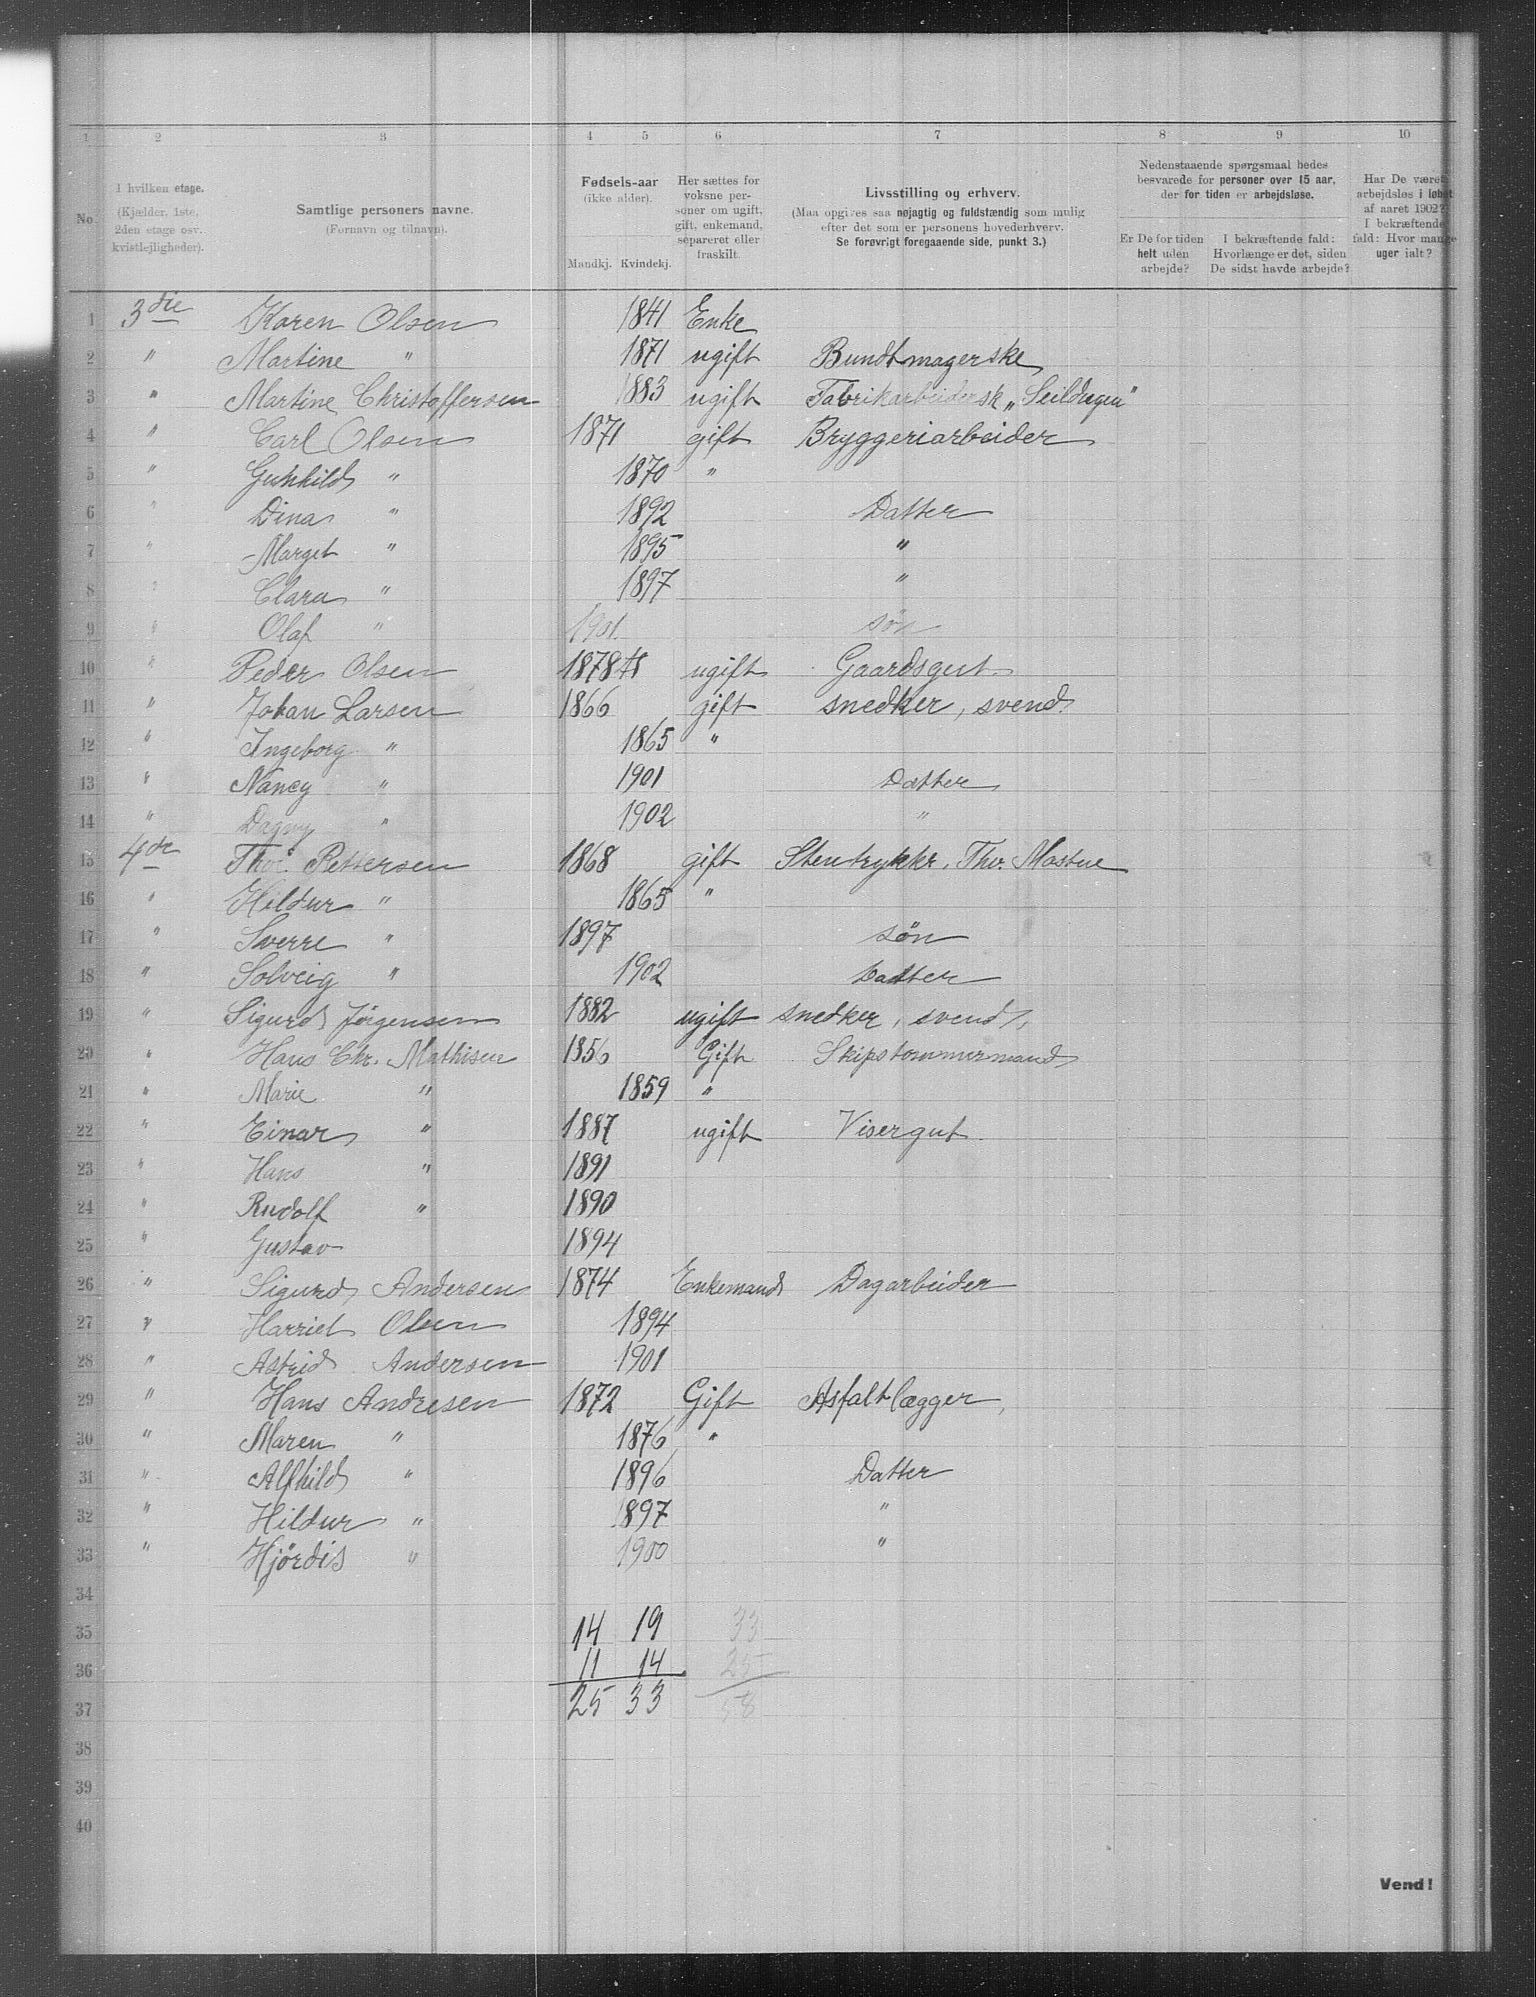 1 2 3 4 5 6 7 8 9 10
No.
I hvilken etage.
(Kjælder, 1ste,
2den etage osv.
kvistlejligheder).
Samtlige personers navne.
(Fornavn og tilnavn).
Fødsels-aar
(ikke alder).
Mandkj. Kvindekj.
Her sættes for
voksne per-
soner om ugift,
gift, enkemand,
separeret eller
fraskilt.
Livsstilling og erhverv.
(Maa opgives saa nøjagtig og fuldstændig som mulig
efter det som er personens hovederhverv.
Se forøvrigt foregaaende side, punkt 3.)
Nedenstaaende spørgsmaal bedes
besvarede for personer over 15 aar,
der for tiden er arbejdsløse.
Er De for tiden
helt uden
arbejde?
I bekræftende fald:
Hvorlænge er det, siden
De sidst havde arbejde?
Har De været
arbejdsløs i løbet
af aaret 1902?
I bekræftende
fald: Hvor mange
uger ialt?
1 3die Karen Olsen 1841 Enke
2 " Martine " 1871 ugift Bundtmagerske
3 " Martine Christoffersen 1883 ugift Fabrikarbeidersk „Seildugen"
4 " Carl Olsen 1871 gift Bryggeriarbeider
5 " Gunhild " 1870 "
6 " Dina " 1892 Datter
7 " Marget " 1895 "
8 " Clara " 1897 "
9 " Olaf " 1901. søn
10 " Peder Olsen 1878 ugift Gaardsgut.
11 " Johan Larsen 1866 gift snedker, svend.
12 " Ingeborg " 1865 "
13 " Nancy " 1901 Datter
14 " Dagny " 1902 "
15 4de Thv. Pettersen 1868 gift Stentrykkr. Thv. Mostue
16 " Hildur " 1865 "
17 " Sverre " 1897 søn
18 " Solveig " 1902 Datter
19 " Sigurd Jørgensen 1882 ugift snedker, svend,
20 " Hans Chr. Mathisen 1856 Gift Skipstømmermand
21 " Marie " 1859 "
22 " Einar " 1887 ugift Visergut.
23 " Hans " 1891
24 " Rudolf " 1890
25 " Gustav 1894
26 " Sigurd Andersen 1874 Enkemand Dagarbeider
27 " Harriet Olsen 1894
28 " Astrid Andersen 1901
29 " Hans Andresen 1872 Gift Asfaltlægger,
30 " Maren " 1876 "
31 " Alfhild " 1896 Datter
32 " Hildur " 1897 "
33 " Hjördis " 1900 "
34
35 14 19 33
36 11 14 25
37 25 33 58
38
39
40
Vend!